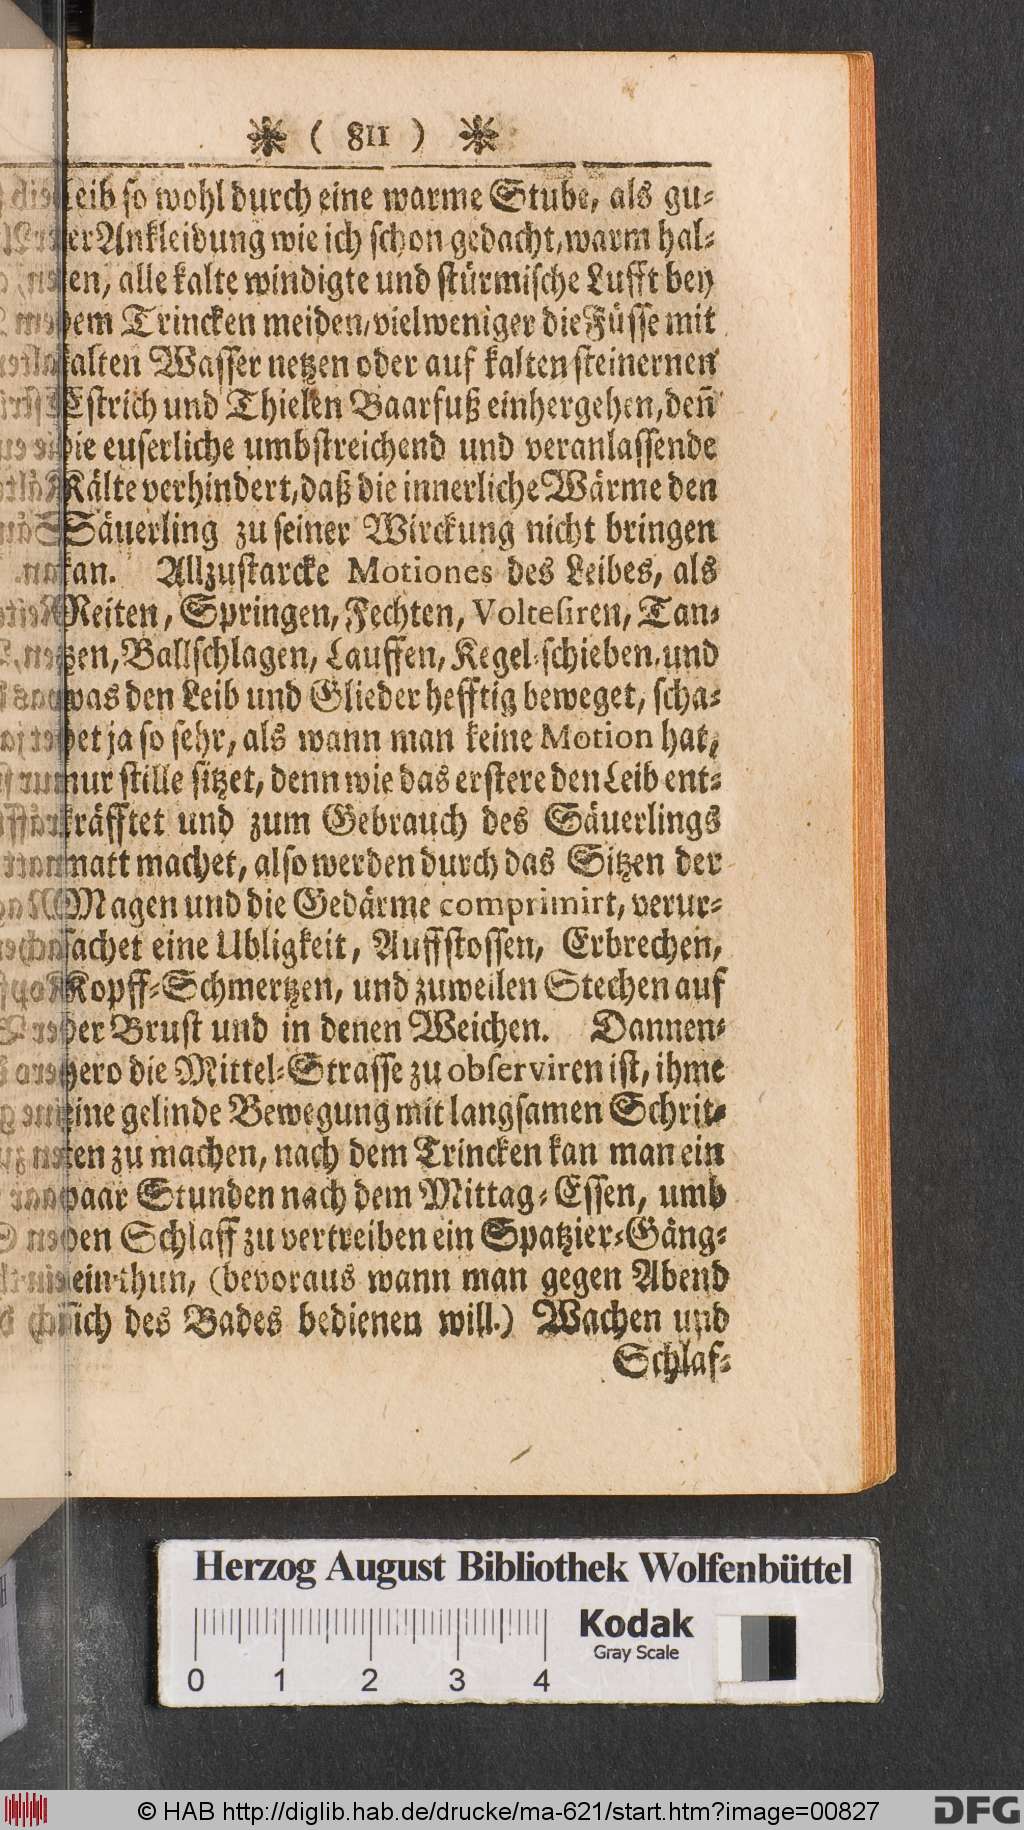 ✳ ( 811 ) ✳
Leib so wohl durch eine warme Stube, als gu-
ter Ankleidung wie ich schon gedacht, warm hal-
ten, alle kalte windigte und stürmische Lufft bey
dem Trincken meiden, vielweniger die Füsse mit
kalten Wasser netzen oder auf kalten steinernen
Estrich und Thielen Baarfuß einhergehen, deñ
die euserliche umbstreichend und veranlassende
Kälte verhindert, daß die innerliche Wärme den
Säuerling zu seiner Wirckung nicht bringen
kan. Allzustarcke Motiones des Leibes, als
Reiten, Springen, Fechten, Voltesiren, Tan-
tzen, Ballschlagen, Lauffen, Kegel-schieben, und
was den Leib und Glieder hefftig beweget, scha-
det ja so sehr, als wann man keine Motion hat,
nur stille sitzet, denn wie das erstere den Leib ent-
kräfftet und zum Gebrauch des Säuerlings
matt machet, also werden durch das Sitzen der
Magen und die Gedärme comprimirt, verur-
sachet eine Ubligkeit, Auffstossen, Erbrechen,
Kopff-Schmertzen, und zuweilen Stechen auf
der Brust und in denen Weichen. Dannen-
hero die Mittel-Strasse zu observiren ist, ihme
eine gelinde Bewegung mit langsamen Schrit-
ten zu machen, nach dem Trincken kan man ein
paar Stunden nach dem Mittag-Essen, umb
den Schlaff zu vertreiben ein Spatzier-Gäng-
lein thun, (bevoraus wann man gegen Abend
sich des Bades bedienen will.) Wachen und
Schlaf-
Herzog August Bibliothek Wolfenbüttel
Kodak
Gray Scale
0 1 2 3 4
© HAB http://diglib.hab.de/drucke/ma-621/start.htm?image=00827
DFG